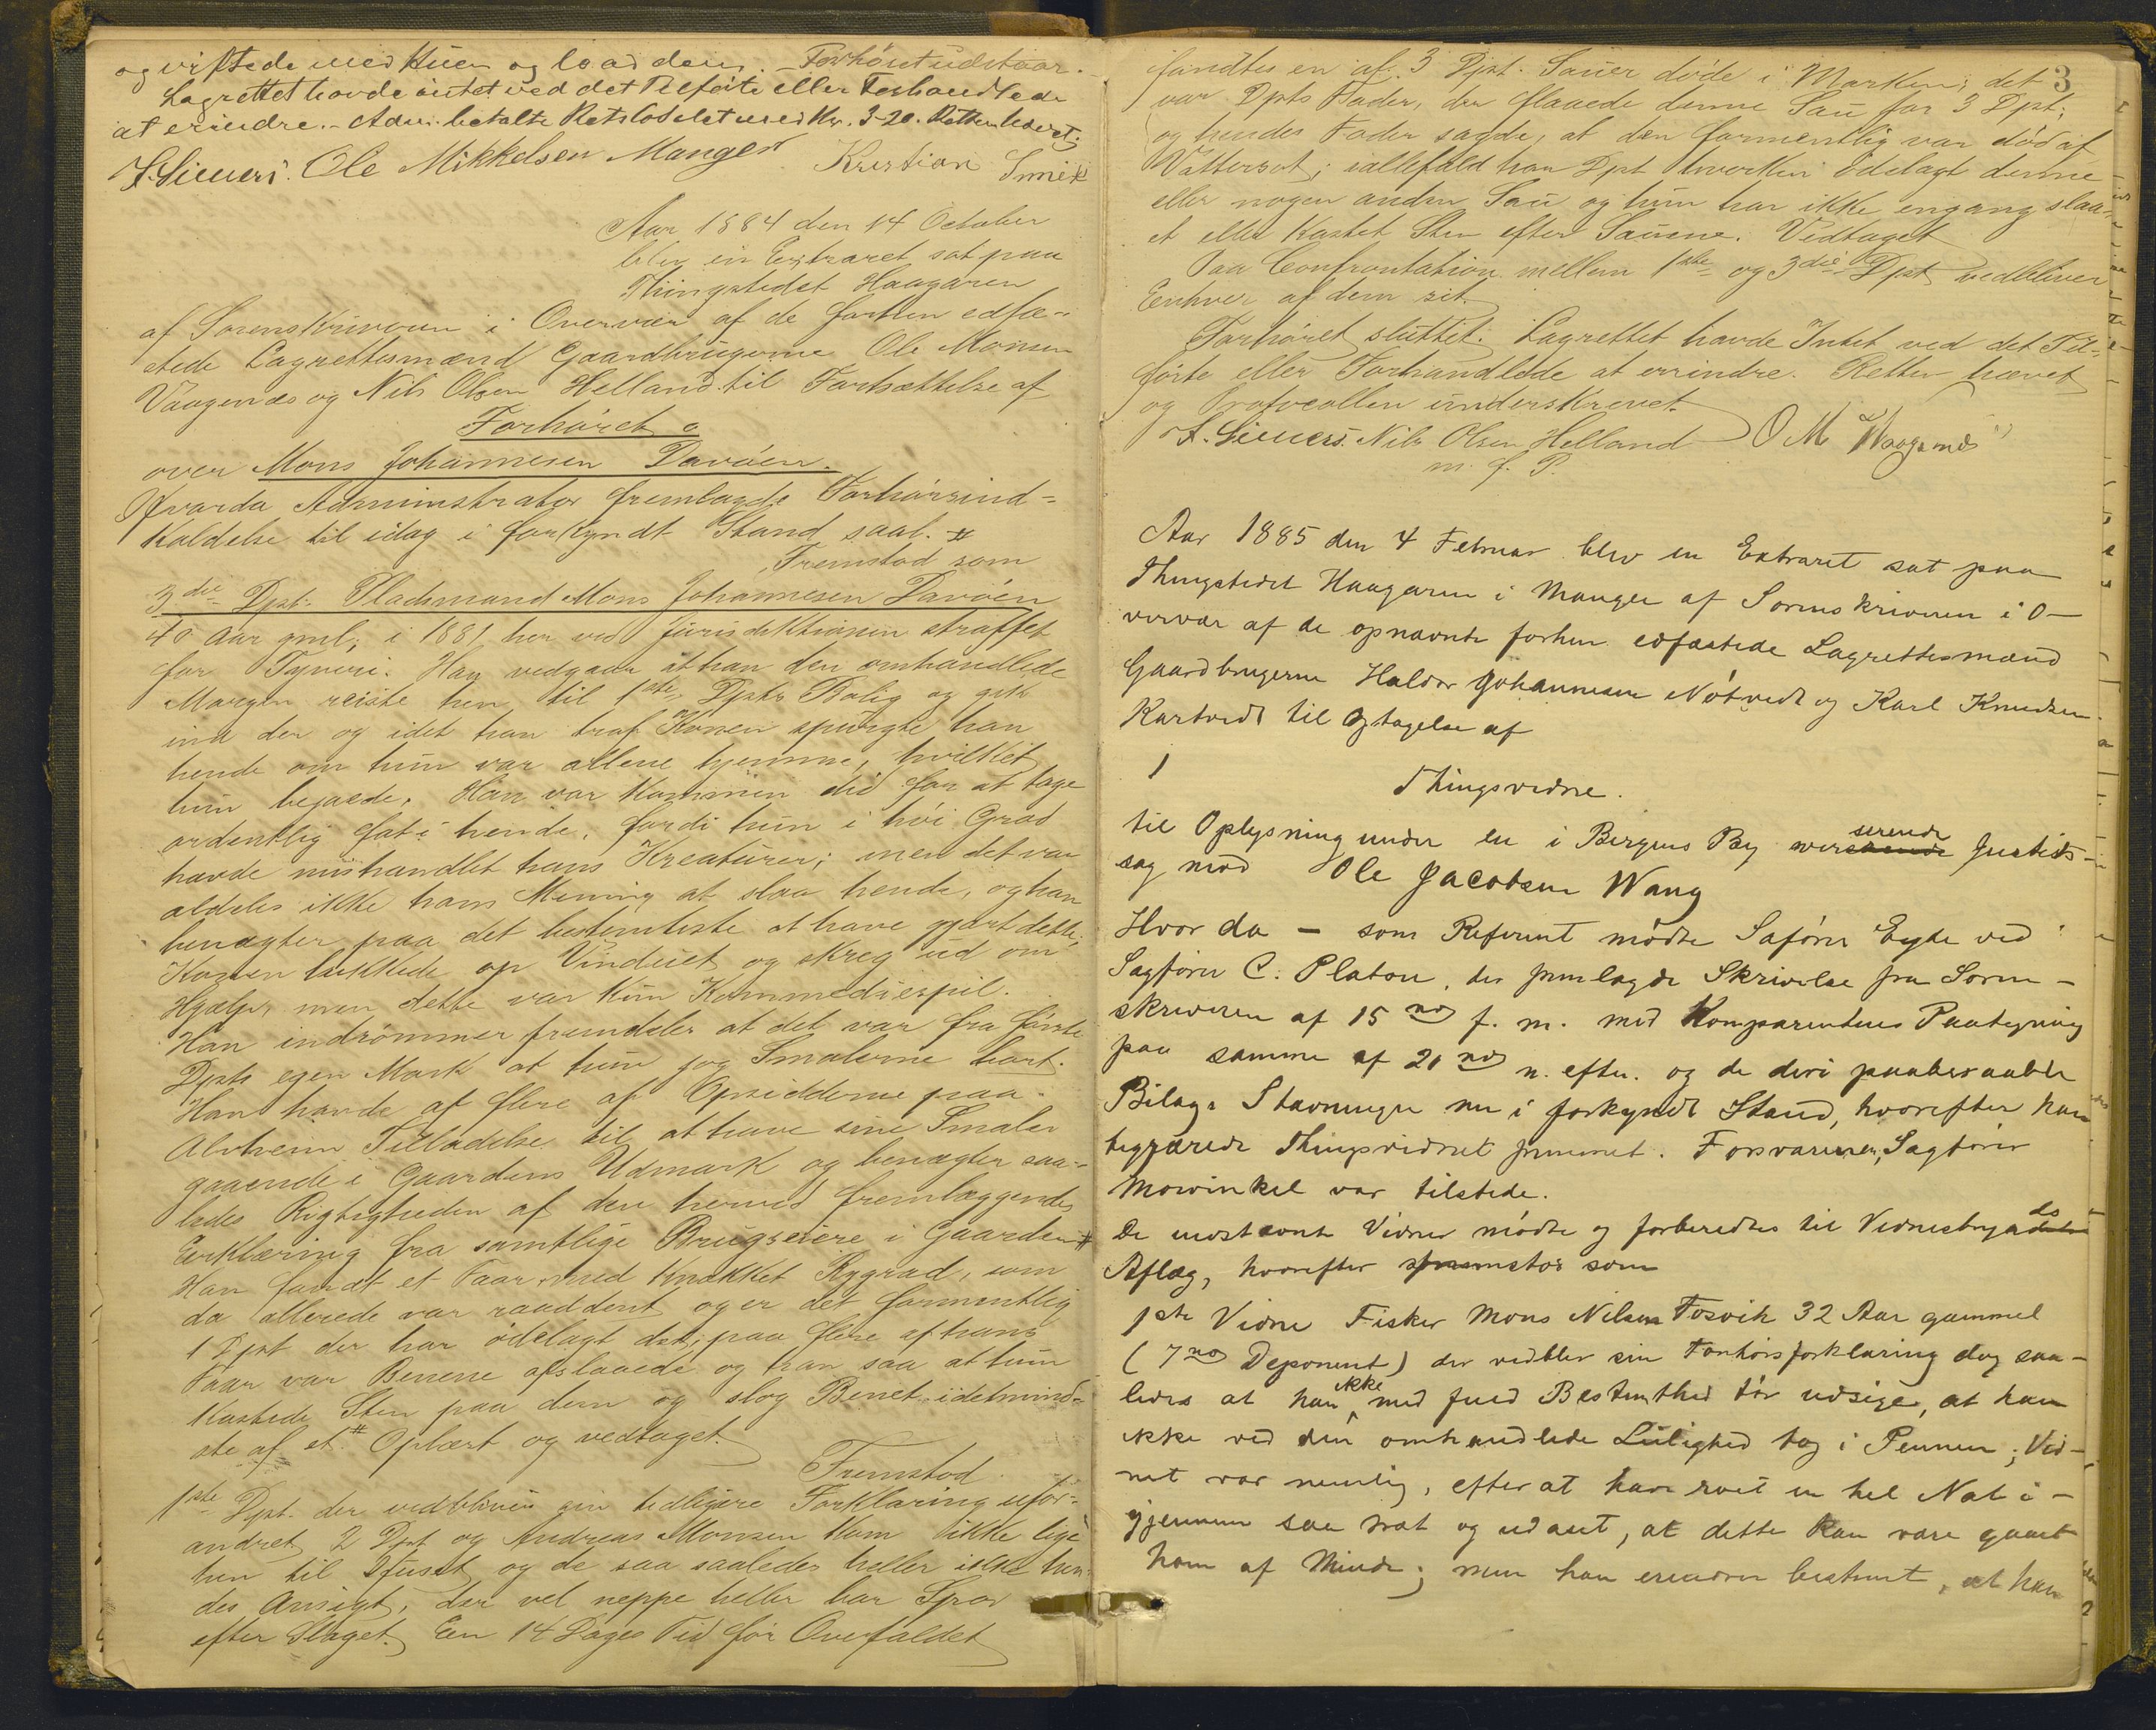 og viftede med Huen og load dem. Forhöret udstaar.
Lagrettet havde intet ved det Tilförte eller Forhandlede
at erindre. - Adm. betalte Retslokalet med Kr. 3-20. Retten hævet.
Ole Mikkelsen Manger Kristian
Aar 1884 den 14 October
blev en Extraret sat paa
Thingstedet Haagaren
af Sorenskriveren i Overvær af de forhen edfæ-
stede Lagrettesmænd Gaardbrugerne Ole Monsen
Vaagenæs og Nils Olsen Helland til Fortsættelse af
Forhöret
over Mons Johannesen Davöen.
Hvorda Administrator fremlagde Forhörsind-
kaldelse til idag i forkyndt Stand saal. #
Fremstod som
3die Dpt. Pladsmand Mons Johannesen Davöen
40 Aar gml, i 1881 her ved Jurisdiktionen straffet
for Tyveri. Han vedgaar at han den omhandlede
Morgen reiste hen til 1ste Dpts Bolig og gik
ind der og idet han traf Konen spurgte han
hende om hun var allene hjemme, hvilket
hun bejaede. Han var kommen did for at tage
ordentlig fat i hende, fordi hun i höi Grad
havde mishandlet hans Kreaturer; men det var
aldeles ikke hans Mening at slaa hende, og han
benægter paa det bestemteste at have gjort dette;
Konen lukkede op Vinduet og skreg ud om
Hjælp, men dette var kun Kommediespil.
Han indrömmer fremdeles at det var fra förste
Dpts egen Mark at hun jog Smalerne bort.
Han havde af flere af Opsidderne paa
Alvheim Tilladelse til at have sine Smaler
gaaende i Gaardens Udmark og benægter saa-
ledes Rigtigheden af den herved fremlæggende
Erklæring fra samtlige Brugseiere i Gaarden #
Han fandt et Faar med knækket Rygrad, som
da allerede var raaddent og er det formentlig
1 Dpt der har ödelagt det; paa flere af hans
Faar var Benene afslaaede og han saa at hun
kastede Sten paa dem og slog Benet idetmind-
ste af et. # Oplæst og vedtaget.
Fremstod
1ste Dpt. der vedbliver sin tidligere Forklaring ufor-
andret 2 Dpt og Andreas Monsen kom ikke lige
hen til Huset og de saa saaledes heller ikke hen-
des Ansigt, der vel neppe heller bar Spor
efter Slaget. Een 14 Dages Tid för Overfaldet
3
fandtes en af 3 Dpt. Sauer döde i Marken; det
var Dpts Fader, der flaaede denne Sau for 3 Dpt;
og hendes Fader sagde, at den formentlig var död af
Vattersot; iallefald har Dpt hverken ödelagt denne
eller nogen anden Sau og hun har ikke engang slaa-
et eller kastet Sten efter Sauene. Vedtaget
Paa Confrontation mellem 1ste og 3die Dpt vedbliver
Enhver af dem sit.
Forhöret sluttet. Lagrettet havde Intet ved det Til-
förte eller Forhandlede at erindre. Retten hævet
og Protocollen underskrevet.
Nils Olsen Helland O M Waagenæs
m. f. P.
Aar 1885 den 4 Februar blev en Extraret sat paa
Thingstedet Haagaren i Manger af Sorenskriveren i O-
vervær af de opnævnte forhen edfæstede Lagrettesmænd
Gaardbrugerne Haldor Johannesen Nötvedt og Karl Knudsen
Kartvedt til Optagelse af
1
Thingsvidne.
til Oplysning under en i Bergens By verserende Justits-
sag mod Ole Jacobsen Wang
Hvor da - som Referent mödte Saförer Eyde ved
Sagförer C. Platou, der fremlagde Skrivelse fra Soren-
skriveren af 15 no f. m. med Komparentens Paategning
paa samme af 21 no n. efter. og de deri paaberaabte
Bilag: Stævninger nu i forkyndt Stand, hvorefter han
begjærede Thingsvidnet fremmet. Forsvareren, Sagförer
Mowinkel var tilstede.
De indstævnte Vidner mödte og forberedtes til Vidnesbyrdets
Aflæg, hvorefter fremstod som
1ste Vidne Fisker Mons Nilsen Fosvik 32 Aar gammel
(7 no Deponent) der vedblev sin Forhörsforklaring dog saa-
ledes at han ikke med fuld Bestemthed tör udsige, at han
ikke ved den omhandlede Leilighed tog i Pennen; Vid-
net var nemlig, efterat have roet en hel Nat i-
gjennem saa vaat og udaset, at dette kan være gaaet
ham af Minde; men han erindrer bestemt, at han